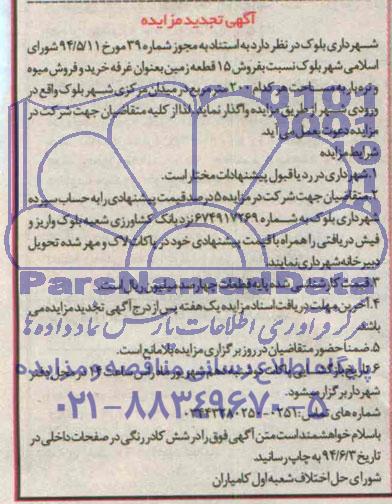 آگهی تجدید مزایده
شهرداری بلوک در نظر دارد به استناد به مجوز شماره ۳۹ مورخ ۹۴/۵/۱۱ شورای
اسلامی شهر بلوک نسبت بفروش ۱۵ قطعه زمین بعنوان غرفه خرید و فروش میوه
و تره بار به مساحت هر کدام ۲۰۰ متر مربع در میدان مرکزی شهر بلوک واقع در
ورودی شهر از طریق مزایده واگذار نماید. لذا از کلیه متقاضیان جهت شرکت در
مزایده دعوت بعمل می آید.
شرایط مزایده
۱. شهرداری در رد یا قبول پیشنهادات مختار است.
۲. متقاضیان جهت شرکت در مزایده ۵ درصد قیمت پیشنهادی را به حساب سپرده
شهرداری بلوک به شماره ۶۷۴۹۱۷۲۶۹ نزد بانک کشاورزی شعبه بلوک واریز و
فیش دریافتی را همراه با قیمت پیشنهادی خود در پاکات لاک و مهر شده تحویل
دبیرخانه شهرداری نمایند.
۳. قیمت کارشناسی شده پایه قطعات چهارصد میلیون ریال است.
۴. آخرین مهلت دریافت اسناد مزایده یک هفته پس از درج آگهی تجدید مزایده می
باشد.
۵. ضمنا حضور متقاضیان در روز برگزاری مزایده بلامانع است.
۶. شهریور در محل دفتر
شهردار برگزار میشود.
شماره های تماس:
با سلام خواهشمند است متن آگهی فوق را در شش کادر رنگی در صفحات داخلی در
تاریخ ۹۴/۶/۳ به چاپ رسانید.
شورای حل اختلاف شعبه اول کامیاران
ParsNamadData
مرکز فرآوری اطلاعات پارس نماد داده ها
پایگاه اطلاع رسانی مناقصه و مزایده
۰۲۱-۸۸۳۴۹۶۷۰-۵